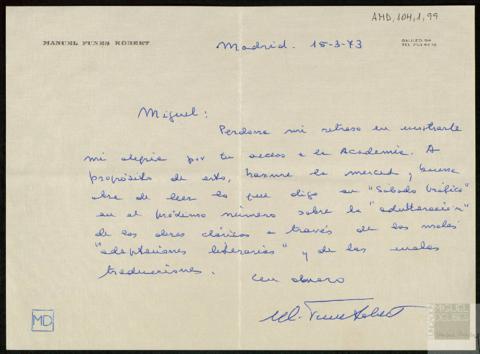 AMD, 104, 1, 99
MANUEL FUNES ROBERT
Madrid. 15-3-73
Miguel:
Perdona mi retraso en mostrarte
mi alegría por tu acceso a la Academia. A
propósito de esto, hazme la merced y buena
obra de leer lo que digo en "Sábado Gráfico"
en el próximo número sobre la "adulteración"
de las obras clásicas a través de las malas
"adaptaciones literarias" y de las malas
traducciones.
Un abrazo
M. Funes Robert
MD
MIGUEL DELIBES